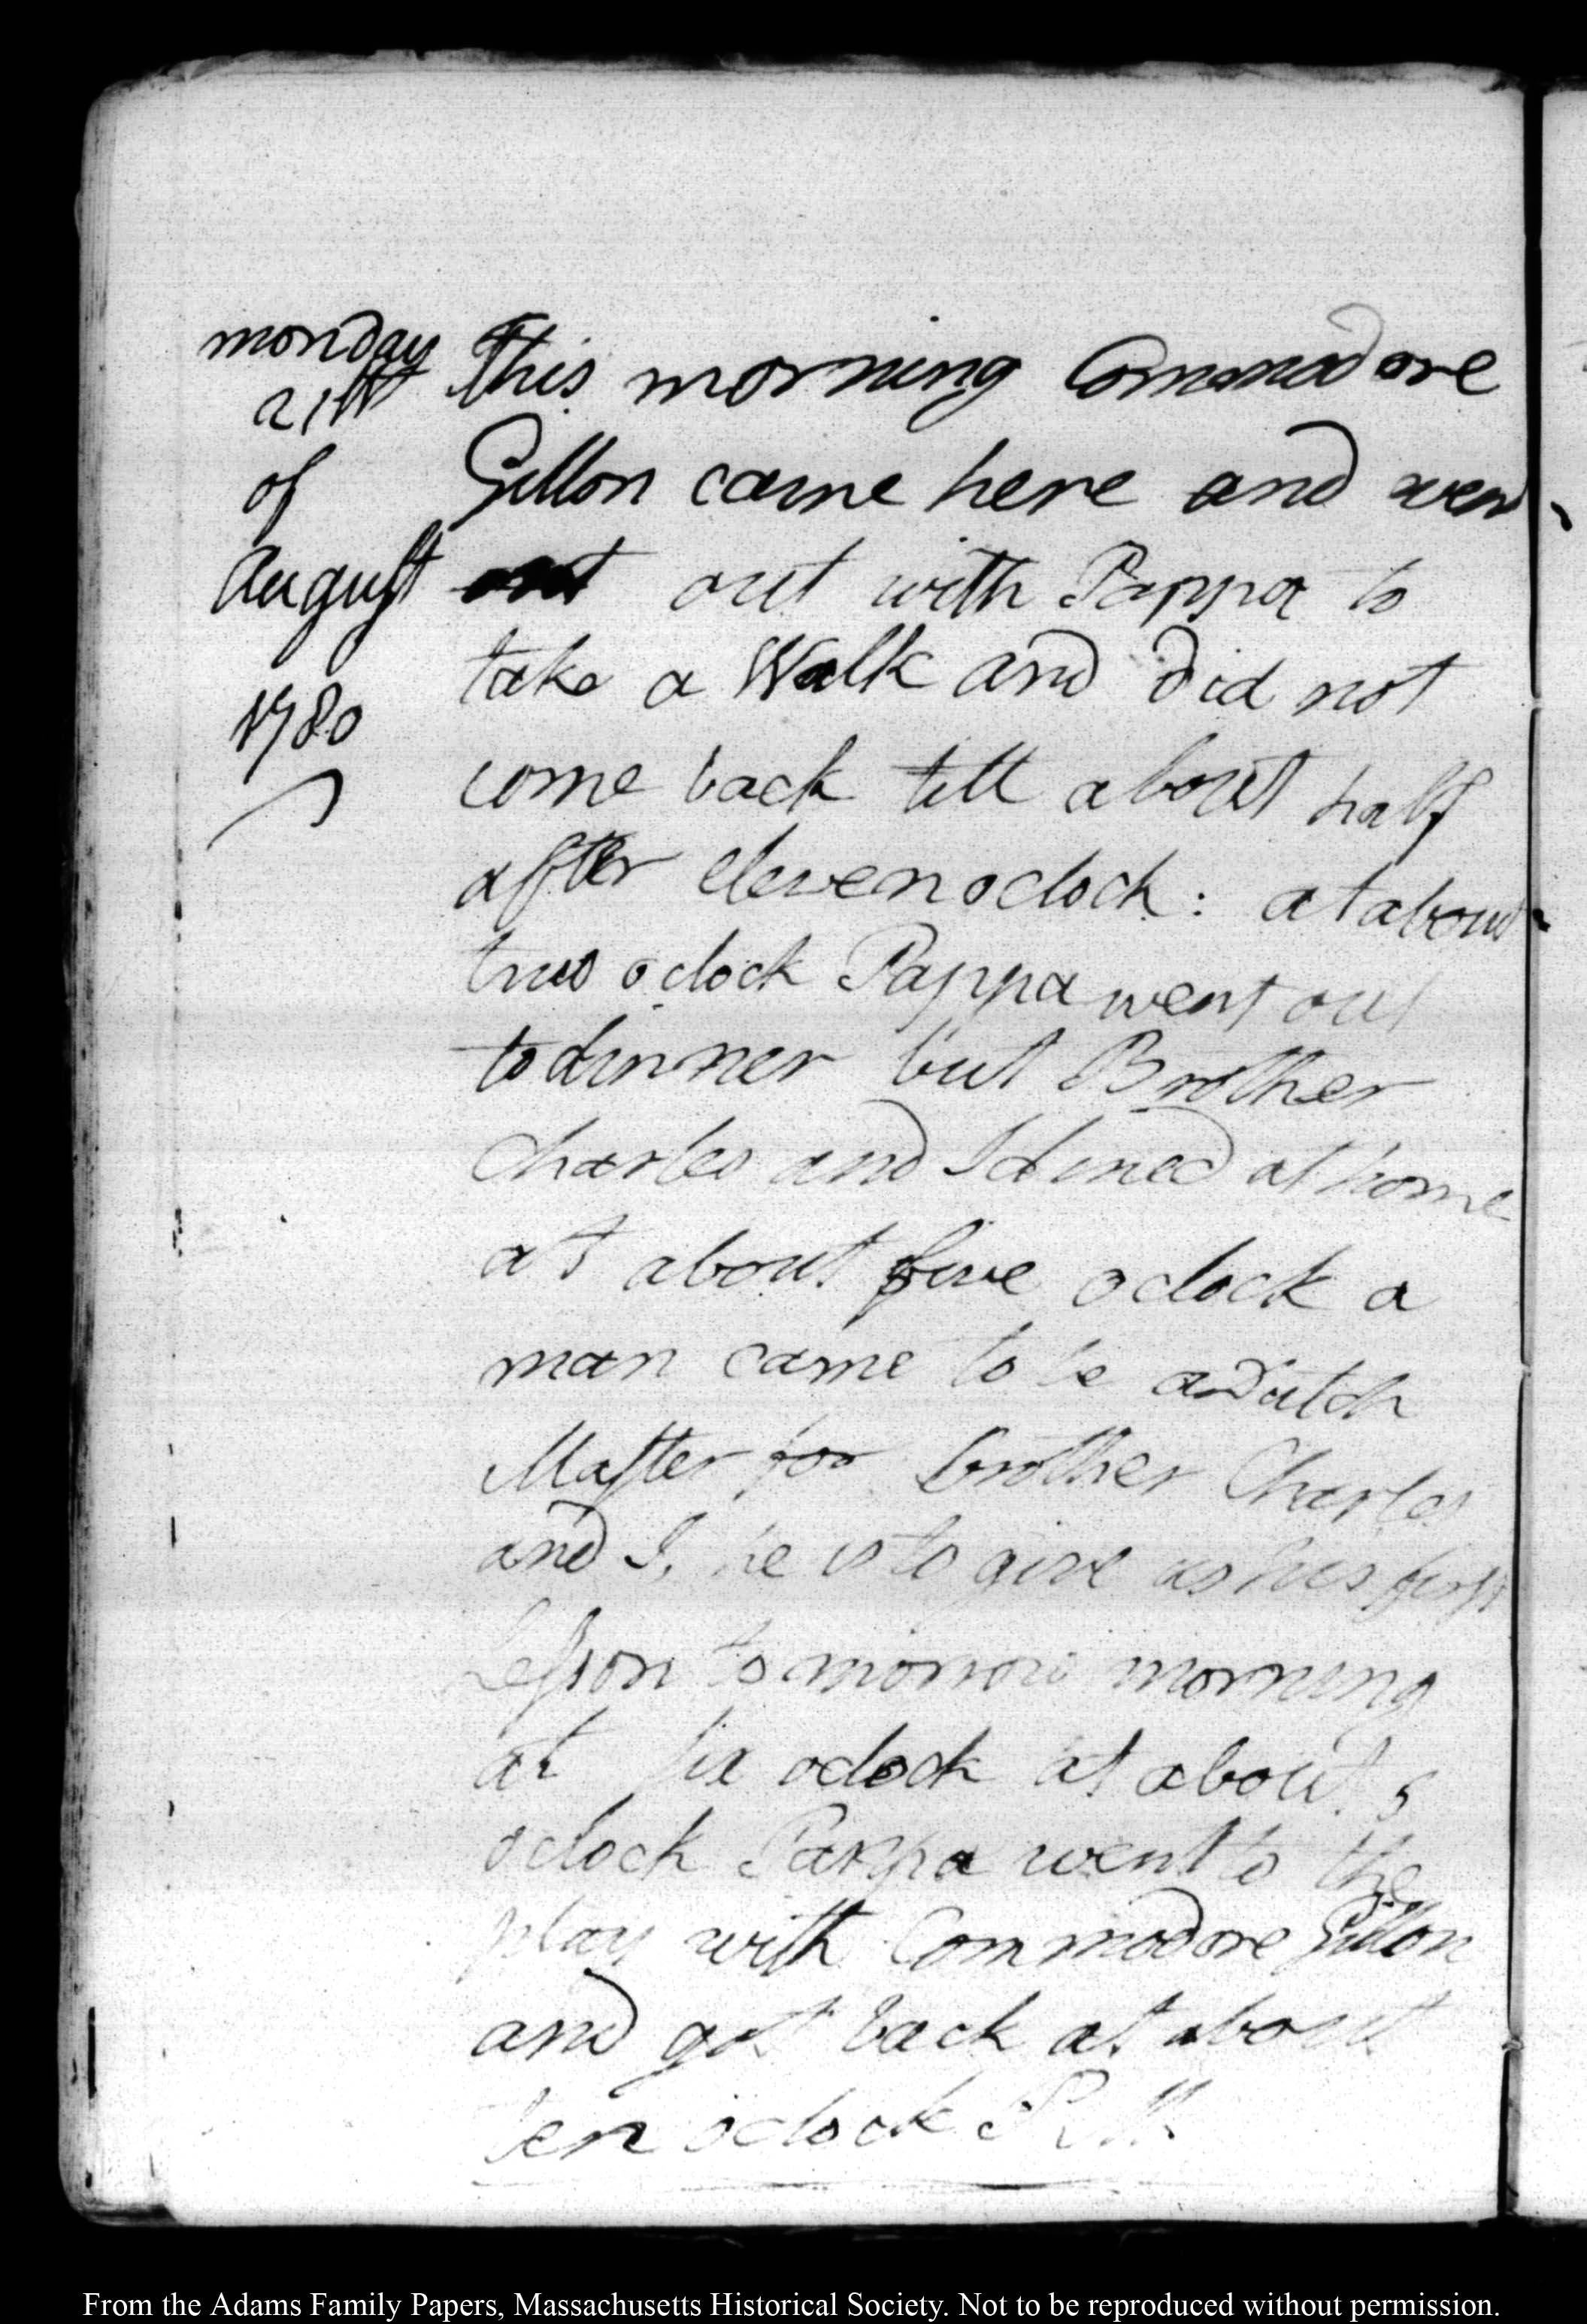 monday
21st
of
August
1780
This morning Commodore
Gillon came here and went
out with Pappa to
take a Walk and did not
come back till about half
after eleven oclock : at about
two oclock Pappa went out
to dinner but Brother
Charles and I dined at home
at about five oclock a
man came to be a dutch
Master for brother Charles
and I, he is to give us his first
Lesson to morrow morning
at six oclock at about
oclock Pappa went to the
play with Commodore Gillon
and got back at about
ten oclock P.M.
From the Adams Family Papers, Massachusetts Historical Society. Not to be reproduced without permission.